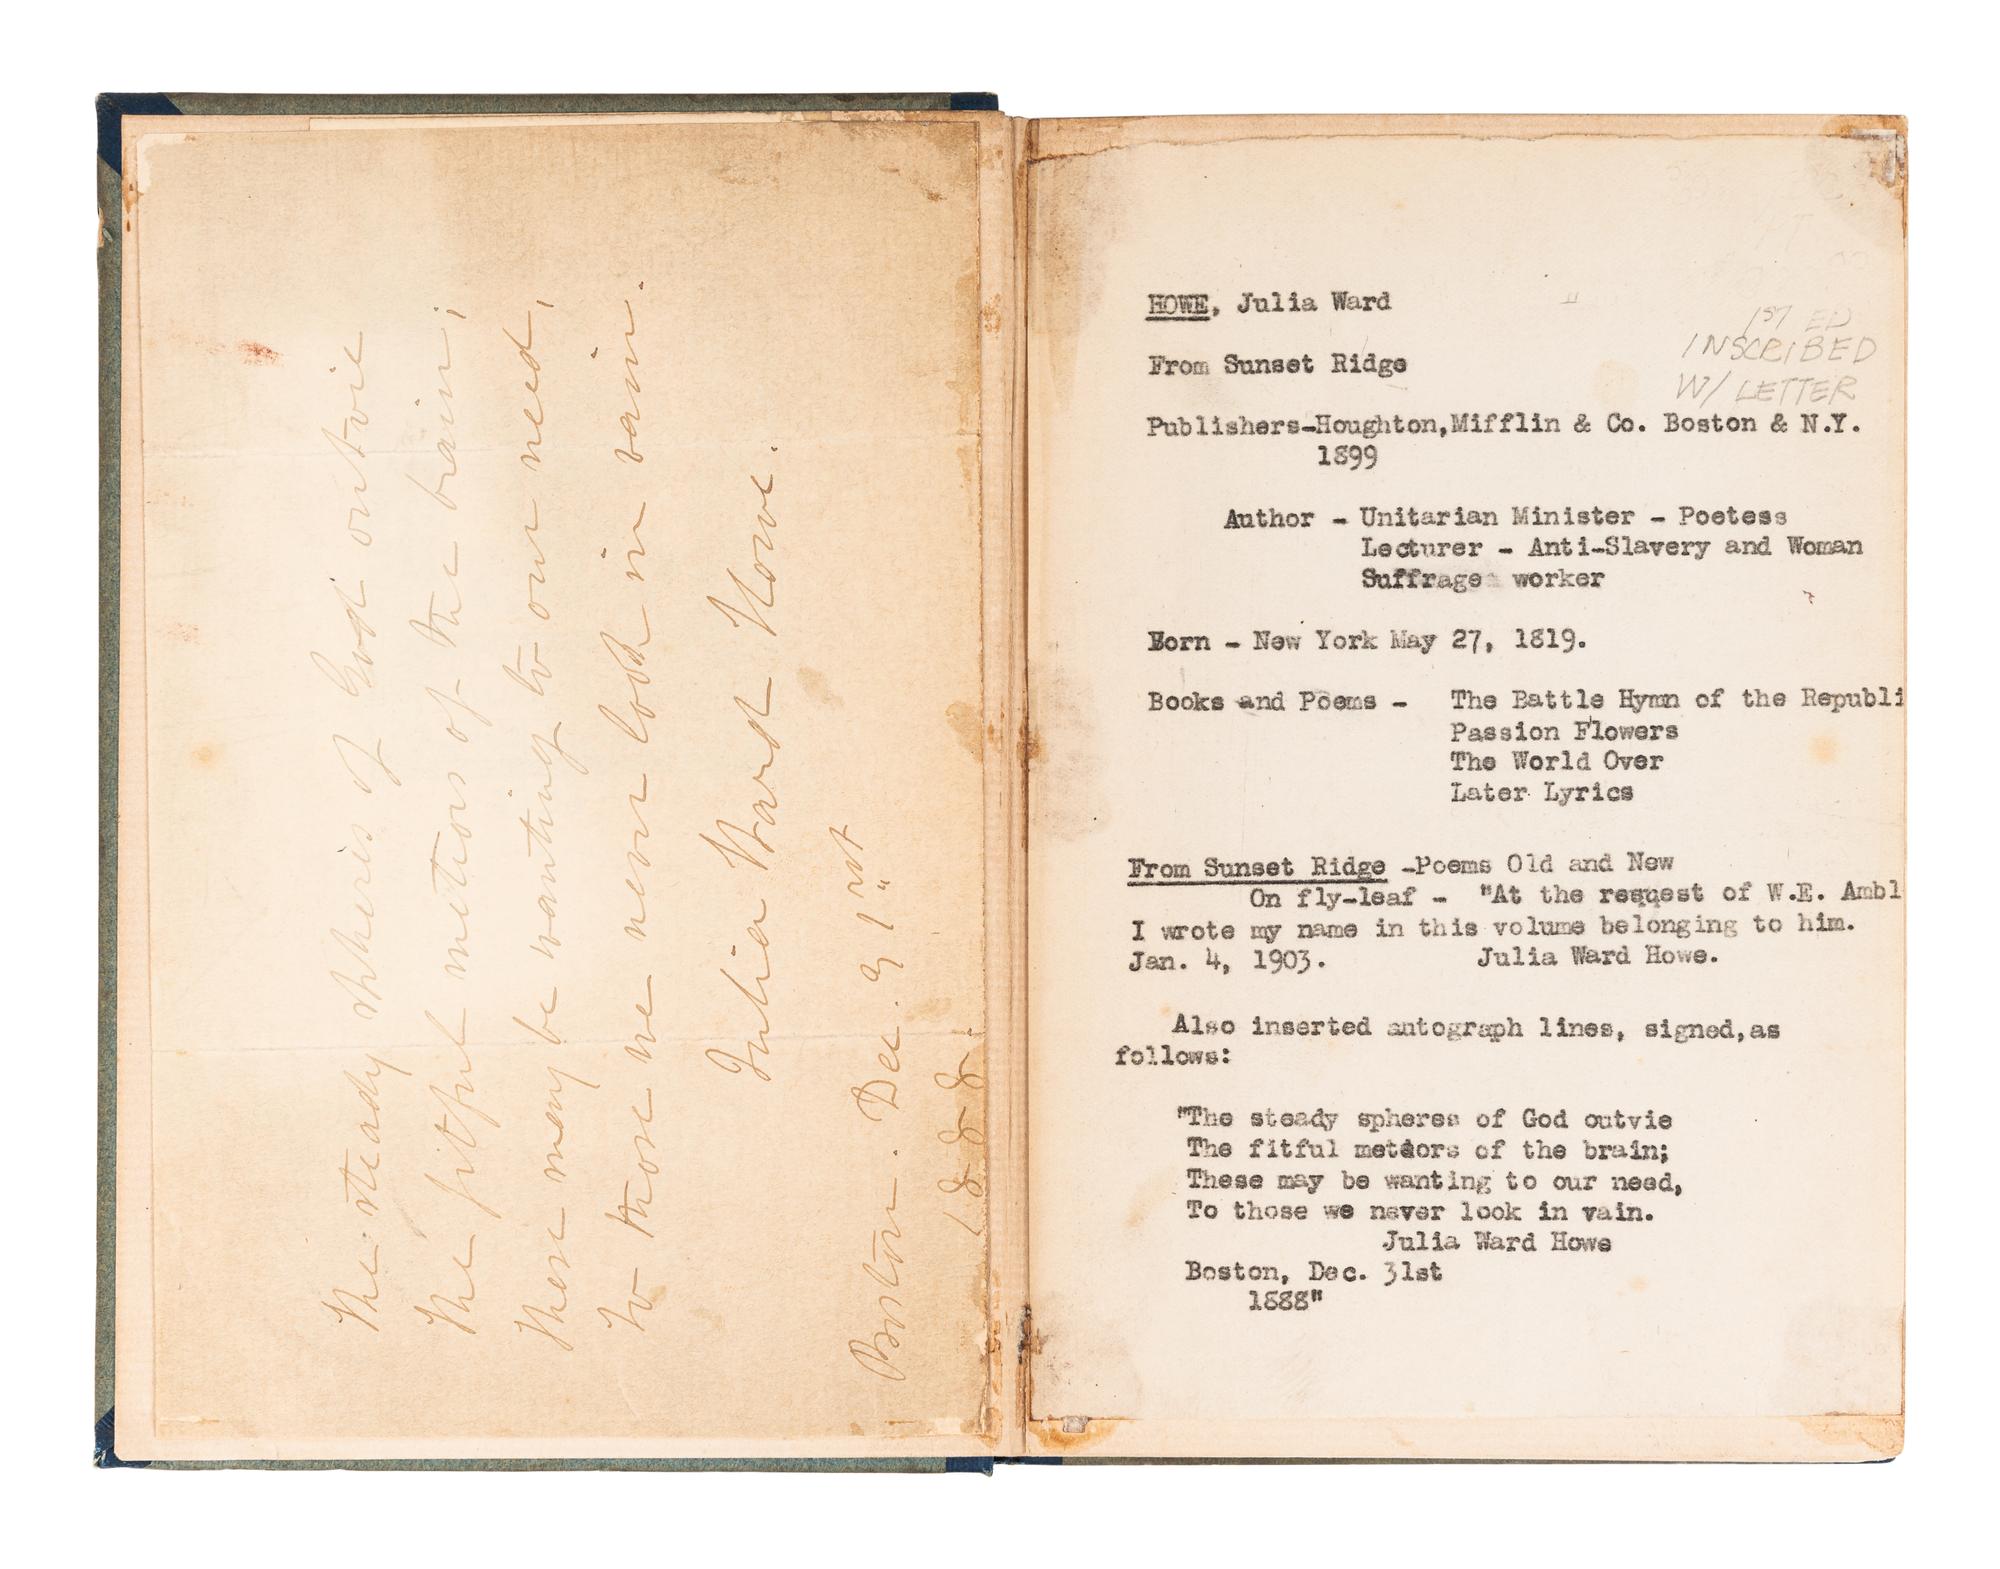 The steady spheres of God outvie
The fitful meteors of the brain;
These may be wanting to our need,
To those we never look in vain.
Julia Ward Howe.
Boston. Dec. 31st
1888.
HOWE, Julia Ward
1ST ED
INSCRIBED
W/ LETTER
From Sunset Ridge
Publishers-Houghton,Mifflin & Co. Boston & N.Y.
1899
Author - Unitarian Minister - Poetess
Lecturer - Anti-Slavery and Woman
Suffrage worker
Born - New York May 27, 1819.
Books and Poems - The Battle Hymn of the Republi
Passion Flowers
The World Over
Later Lyrics
From Sunset Ridge -Poems Old and New
On fly-leaf - "At the request of W.E. Ambl
I wrote my name in this volume belonging to him.
Jan. 4, 1903. Julia Ward Howe.
Also inserted autograph lines, signed,as
follows:
"The steady spheres of God outvie
The fitful meteors of the brain;
These may be wanting to our need,
To those we never look in vain.
Julia Ward Howe
Boston, Dec. 31st
1888"